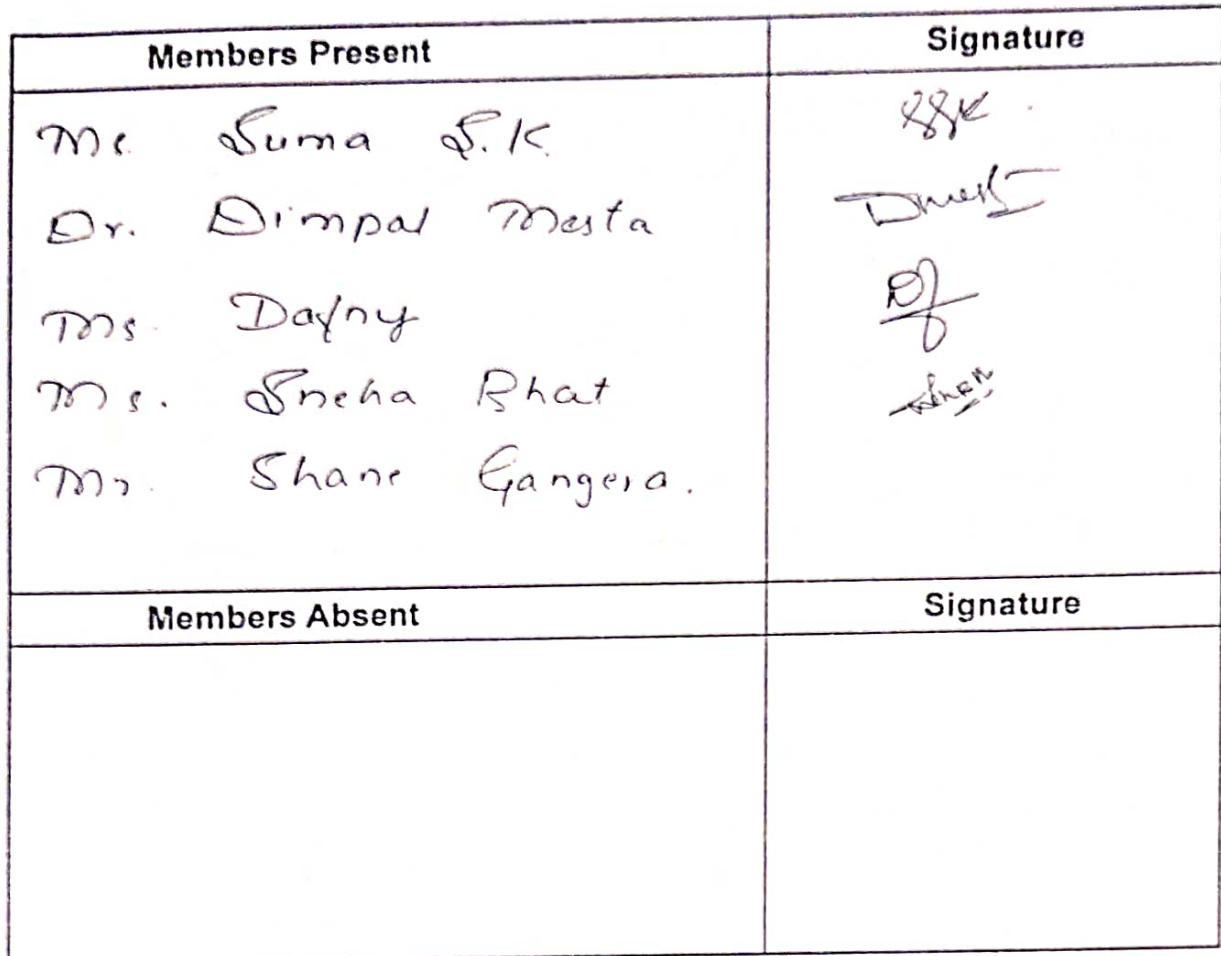 Members Present Signature
Ms. Suma S.K. SSK
Dr. Dimpal Mesta
Ms. Dafny
Ms. Sneha Bhat
Mr. Shane Gangera.
Members Absent Signature